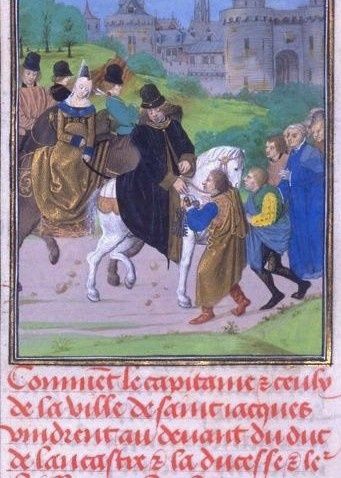 Comment le capitaine & ceulx
de la ville de saint iacques
vindrent au devant du duc
de lancastre & la ducesse & le